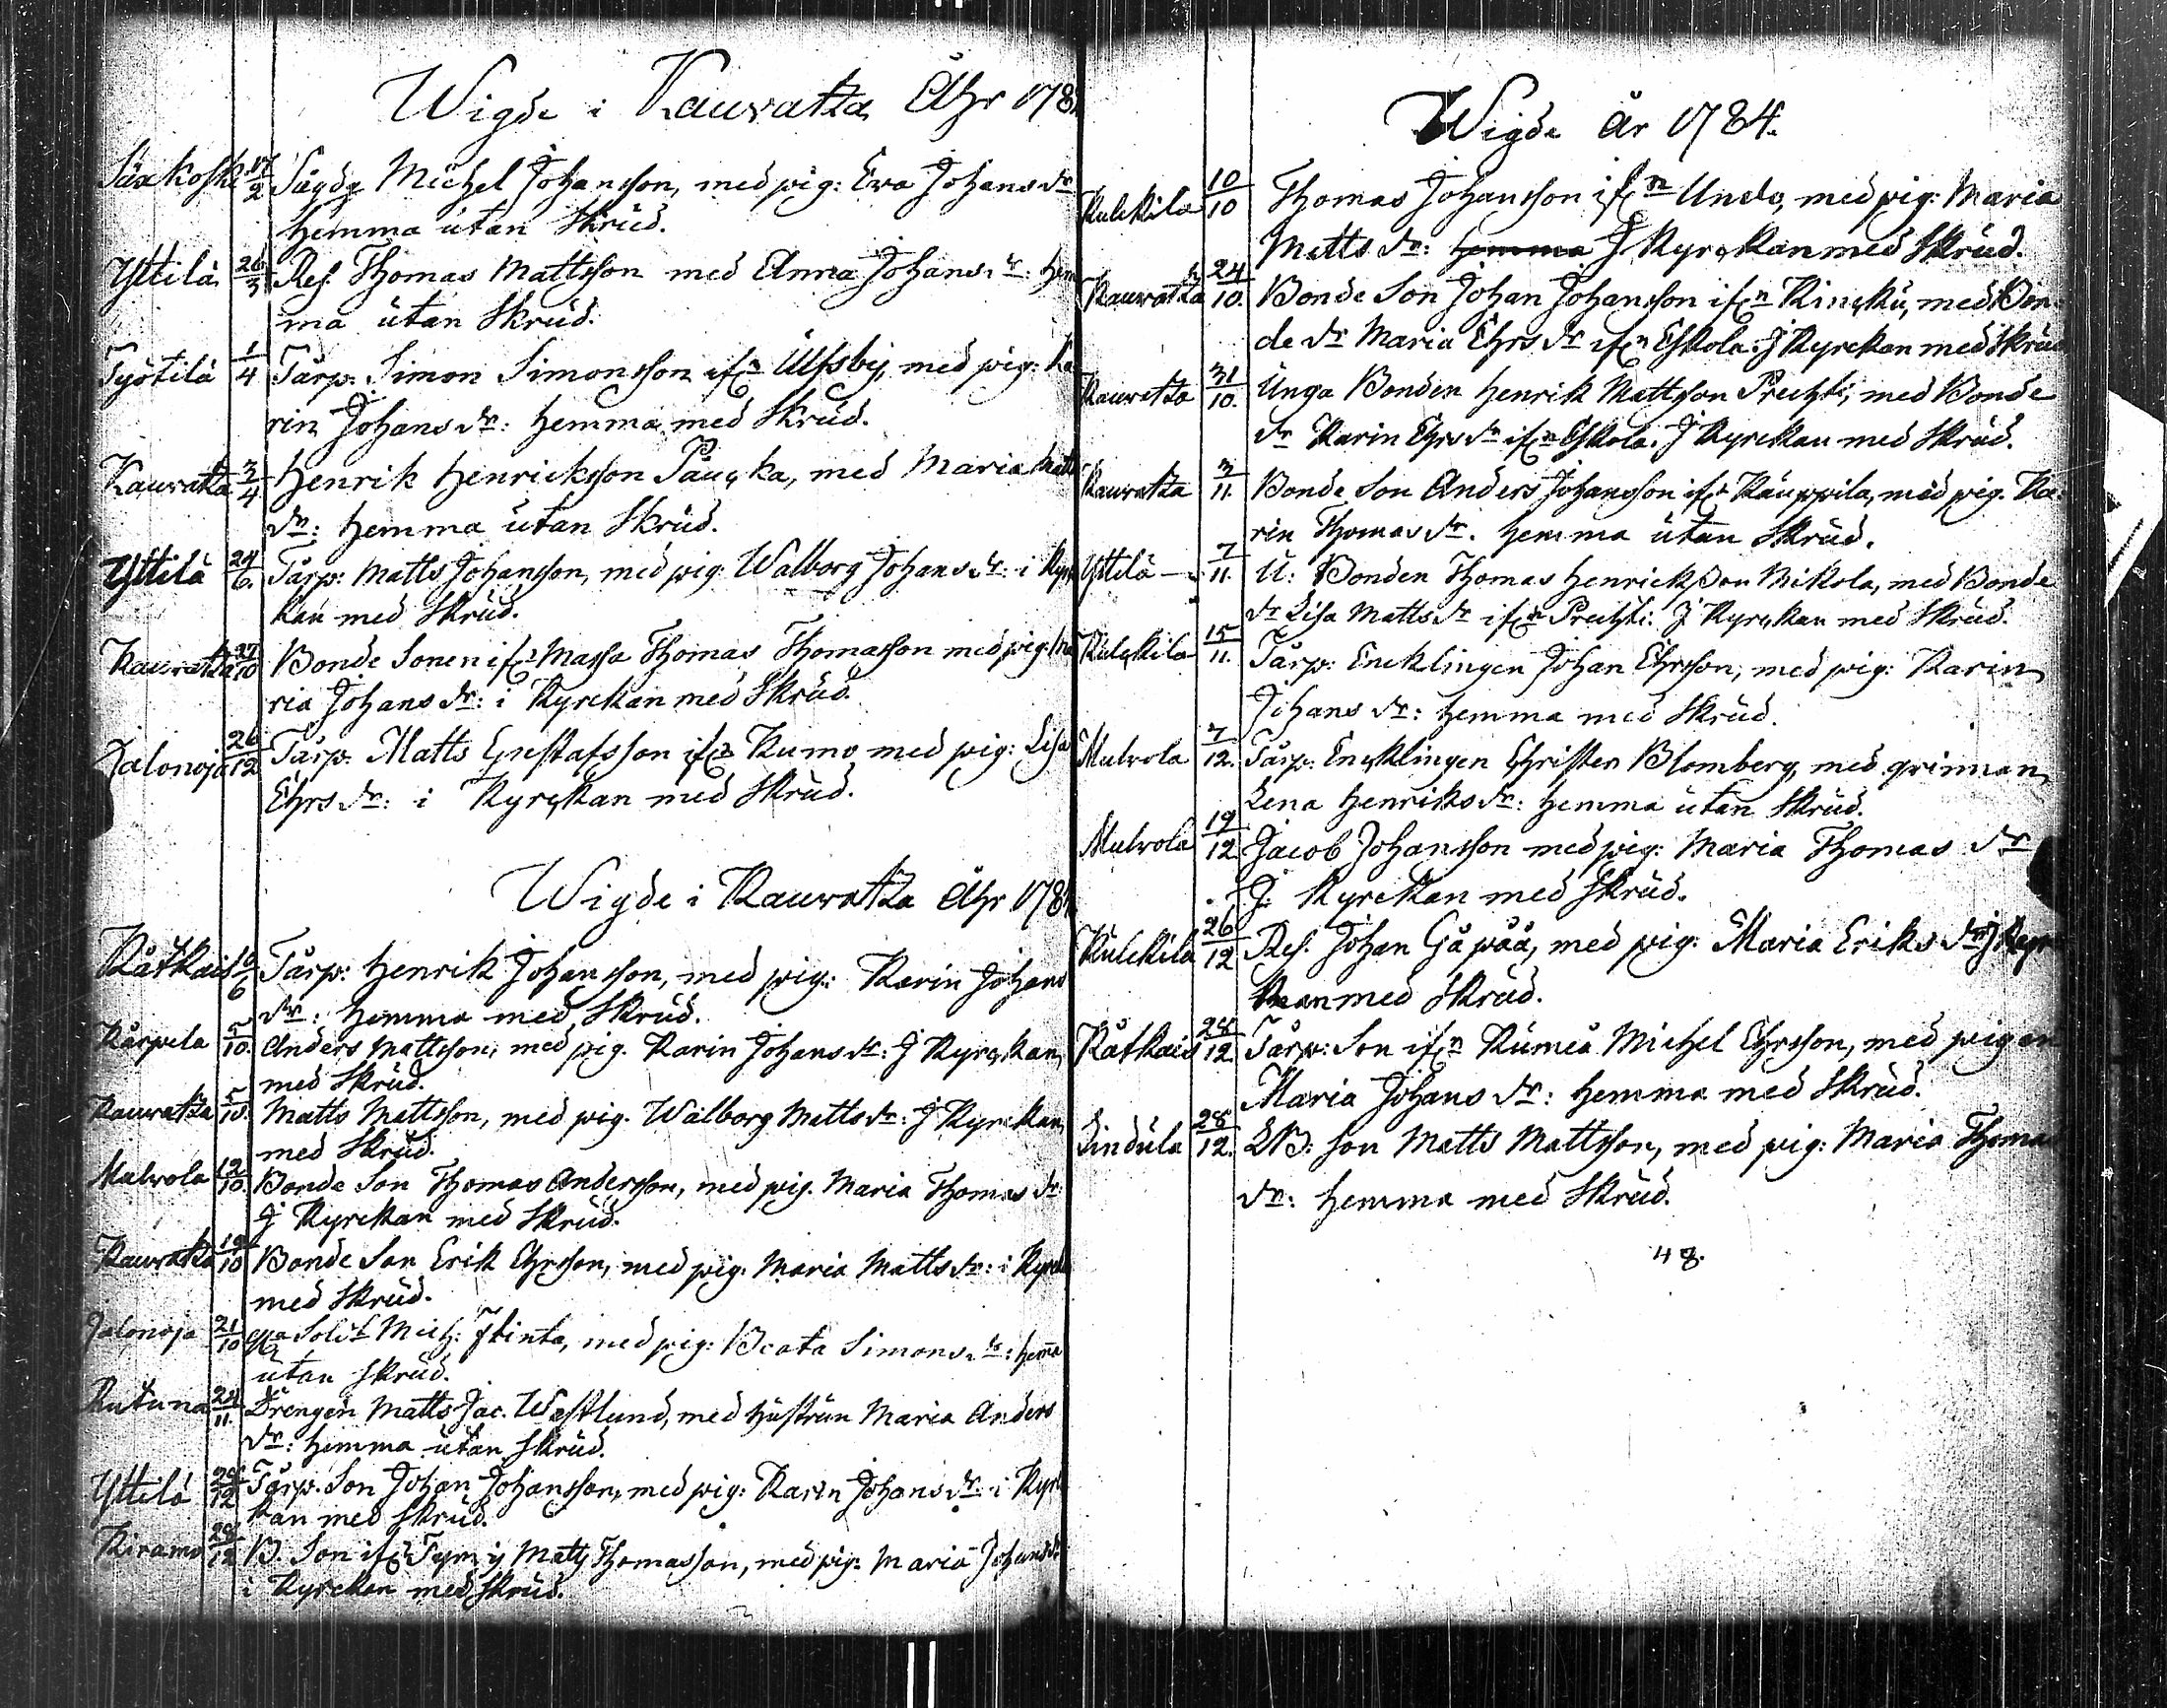 Wigde i Kauvatza Åhr 178
Säxkoski 17/2 Michel Johansson, med pig: Eva Johans dr
hemma utan Skrud.
Yttilä 26/3 Res. Thomas Mattsson med Anna Johans dr: hem
ma utan Skrud.
Työtilä 1/4 Tårp: Simon Simonsson ifrn Ulfsby, med pig: Ka
rin Johans dr: hemma med Skrud.
Kauvatza 3/4 Henrik Henricksson med Maria Matts
dr: hemma utan Skrud.
Yttilä 24/6. Tårp: Matts Johansson, med pig: Walborg Johans dr: i Kyrc
kan med Skrud.
Kauvatza 27/10 Bonde Sonen ifrn Massa Thomas Thomasson med pig: Ma
ria Johans dr: i Kyrckan med Skrud.
Jalonoja 26/12 Tårp: Matts Gustafsson ifrn Kumo med pig: Lisa
Ehrs dr: i Kyrckan med Skrud.
Wigde i Kauvatza Åhr 178
Råtkais 16/6 Tårp: Henrik Johansson, med pig: Karin Johans
dr: hemma med Skrud.
Kårpela 5/10. Anders Mattsson, med pig. Karin Johans dr: J Kyrckan
med Skrud.
Kauvatza 5/10. Matts Mattsson, med pig. Walborg Matts dr: J Kyrckan
med Skrud.
Malvola 12/10. Bonde Son Thomas Andersson, med pig. Maria Thomas dr
J Kyrckan med Skrud.
Kauvatza 19/10 Bonde Son Erik Ehrsson, med pig. Maria Matts dr: i Kyrck
med Skrud.
Jalonoja 21/10 Mich: Flinta, med pig: Beata Simons dr: hema
utan Skrud.
Kutuna 24/11. Drengen Matts Jac. Westlund, med hustrun Maria Anders
dr: hemma utan Skrud.
Yttilä 28/12 Tårp. Son Johan Johansson, med pig: Karin Johans dr: i Kyrc
kan med Skrud.
Kiramo 28/12 B. Son ifrn Matts Thomasson, med pig: Maria Johans dr
i Kyrckan med Skrud.
Wigde år 1784.
Kulckila 10/10 Thomas Johansson ifrn Undo, med pig: Maria
Matts dr: hemma J Kyrckan med Skrud.
Kauvatza 24/10. Bonde Son Johan Johansson ifrn Kincku, med Bon
de dr Maria Ehrs dr ifrn Eskola. J Kyrckan med Skrud
Kauvatza 31/10. Unga Bonden Henrik Mattsson Prechti, med Bonde
dr Karin Ehrs dr ifrn Eskola. J Kyrckan med Skrud.
Kauvatza 3/11. Bonde Son Anders Johansson ifrn Käuppila, med pig. Ka
rin Thomas dr. hemma utan Skrud.
Yttilä 7/11. U: Bonden Thomas Henricksson Mikola, med Bonde
dr Lisa Matts dr ifrn Prechti. J Kyrckan med Skrud.
Kulckila 15/11. Tårp: Encklingen Johan Ehrsson, med pig: Karin
Johans dr: hemma med Skrud.
Malvola 7/12. Tårp: Encklingen Christer Blomberg, med qvinnan
Lena Henriks dr: hemma utan Skrud.
Malvola 19/12 Jacob Johansson med pig: Maria Thomas dr
J. Kyrckan med Skrud.
Kulckila 26/12 Res. Johan Gåpåå, med pig: Maria Eriks dr J Kyrc
kan med Skrud.
Råtkais 28/12 Tårp: Son ifrn Kumeå Michel Ehrsson, med pigan
Maria Johans dr: hemma med Skrud.
Lindula 28/12. LB: son Matts Mattsson, med pig: Maria Thoma
dr: hemma med Skrud.
48.